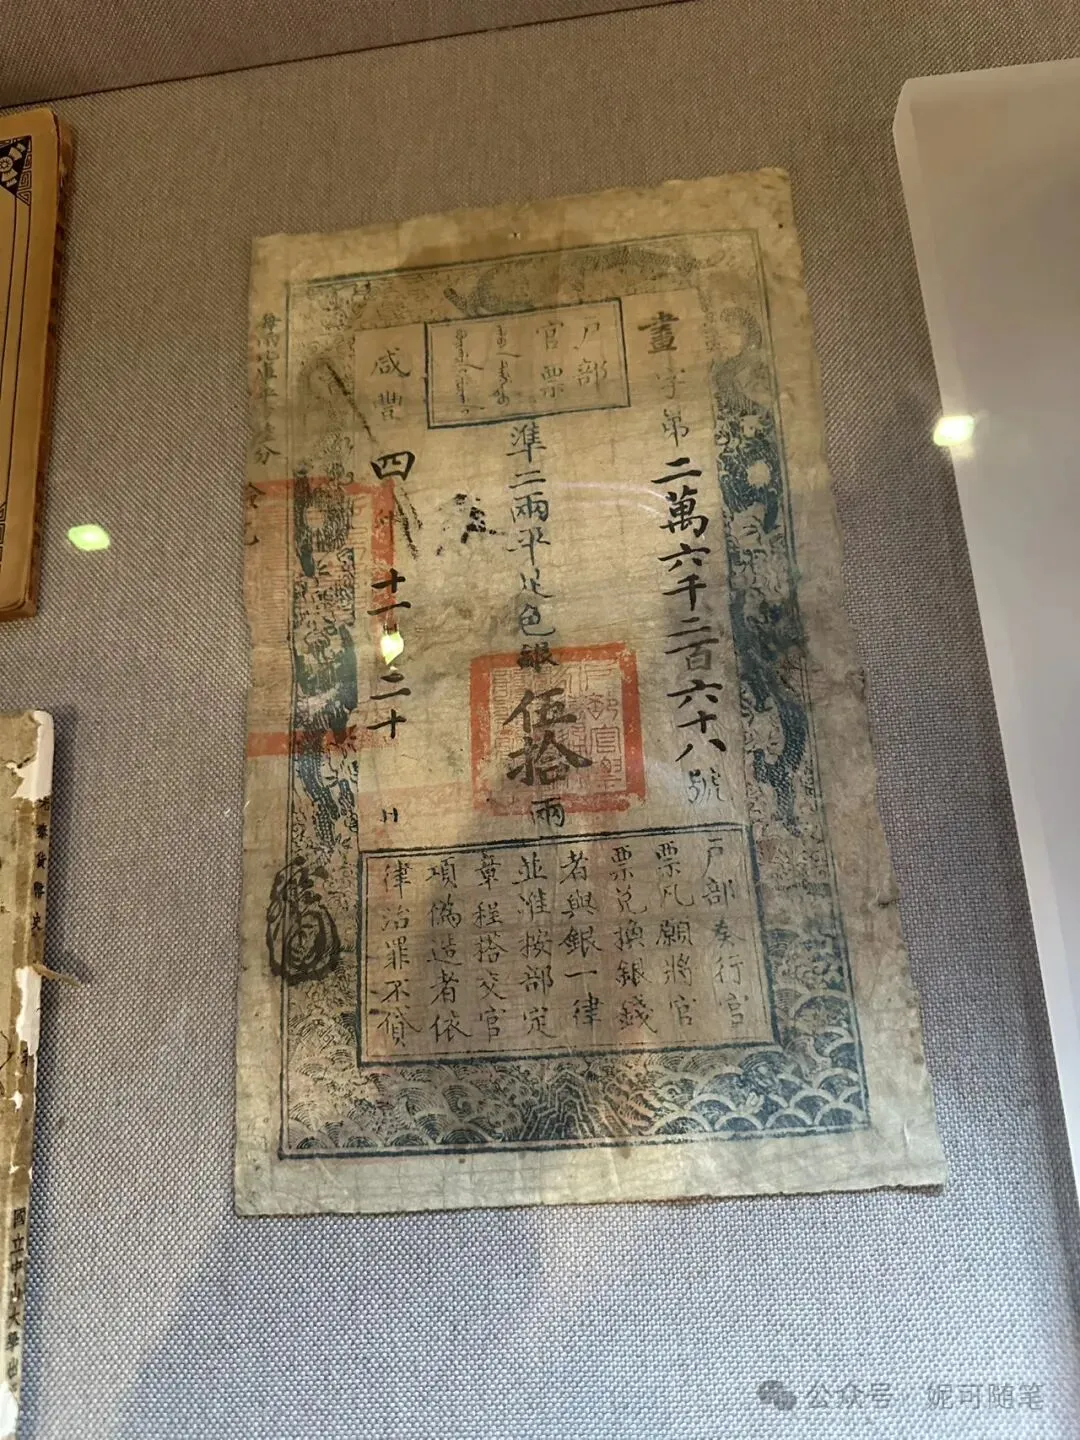 戶部
官票
畫字第二萬六千二百六十八號
準二兩平足色銀伍拾兩
咸豐四年十一月二十日
戶部奏行官
票凡願將官
票兌換銀錢
者與銀一律
並准按部定
章程搭交官
項偽造者依
律治罪不貸
幣史
國立中山大學出
公众号 妮可随笔